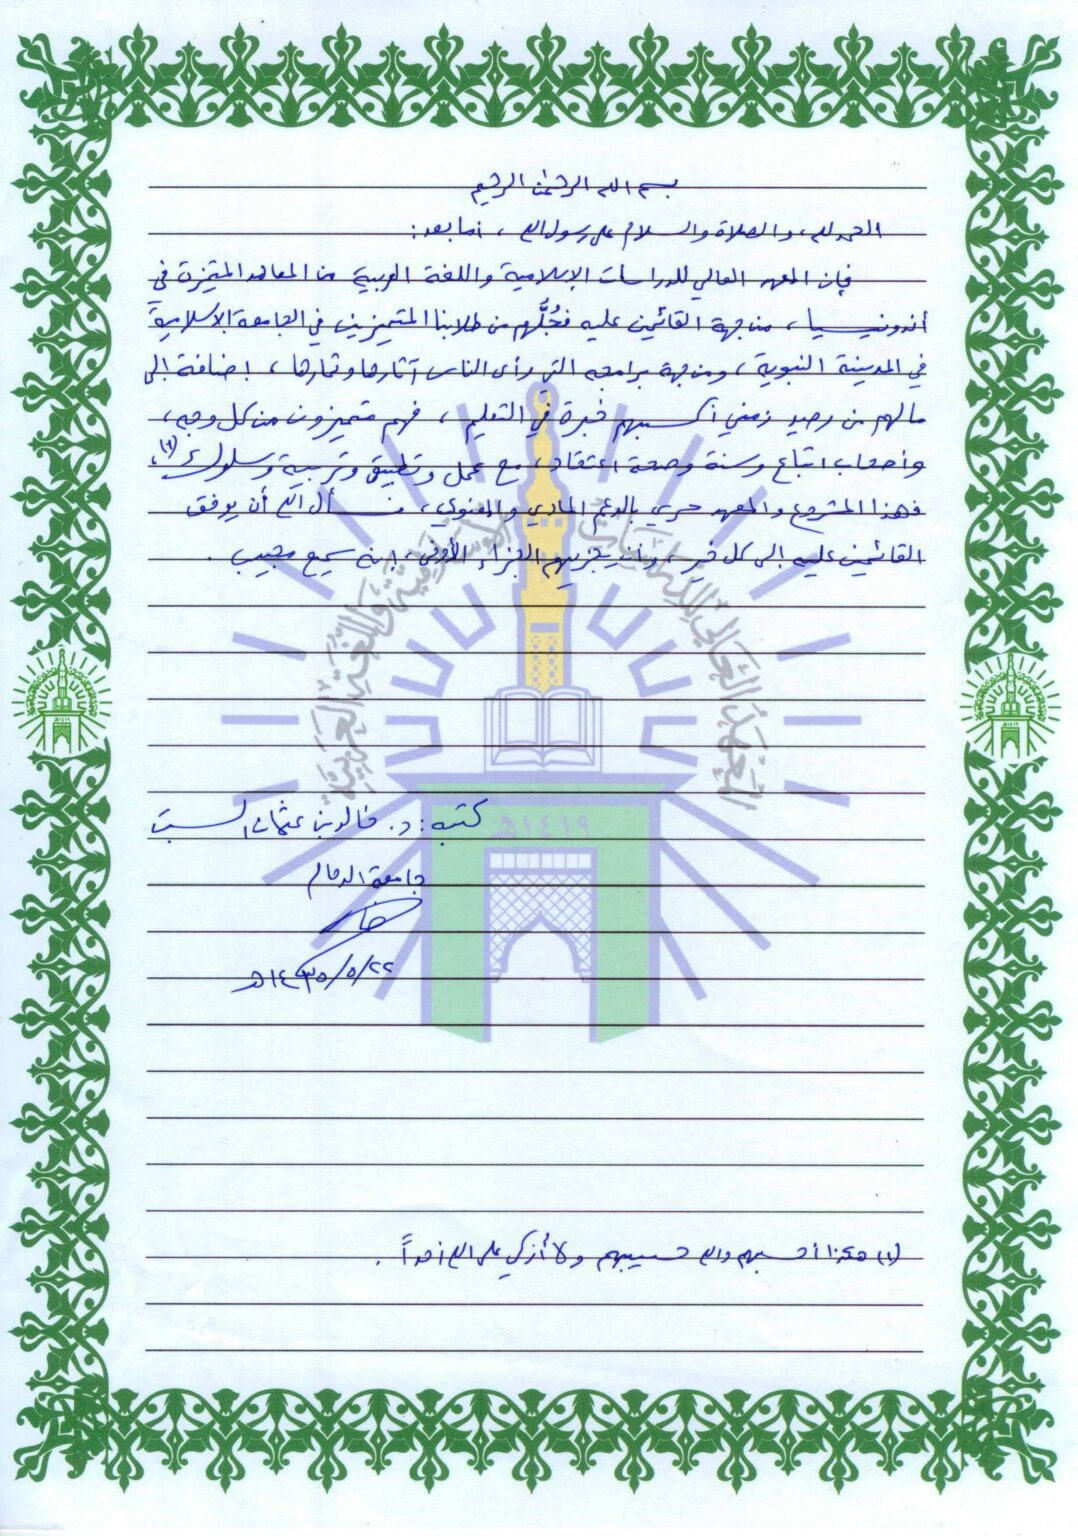 بسم الله الرحمن الرحيم
الحمد لله، والصلاة والسلام على رسول الله، أما بعد:
فإن المعهد العالي للدراسات الإسلامية واللغة العربية من المعاهد المتميزة في
أندونيسيا، من جهة القائمين عليه فجُلُّهم من طلابنا المتميزين في الجامعة الإسلامية
في المدينة النبوية، ومن جهة برامجه التي رأى الناس آثارها وثمارها، إضافة إلى
ما لهم من رصيد زمني أكسبهم خبرة في التعليم، فهم متميزون من كل وجه،
وأصحاب اتباع وسنة وصحة اعتقاد، مع عمل وتطبيق وتربية وسلوك(١)،
فهذا المشروع والمعهد حري بالدعم المادي والمعنوي، نسأل الله أن يوفق
القائمين عليه إلى كل خير، وأن يجزيهم الجزاء الأوفى، إنه سميع مجيب.
المعهد العالي للدراسات الإسلامية واللغة العربية
١٤١٩هـ
كتبه: د. خالد بن عثمان السبت
جامعة الدمام
٢٢/٥/١٤٣٥هـ
(١) هكذا أحسبهم والله حسيبهم ولا أزكي على الله أحداً.